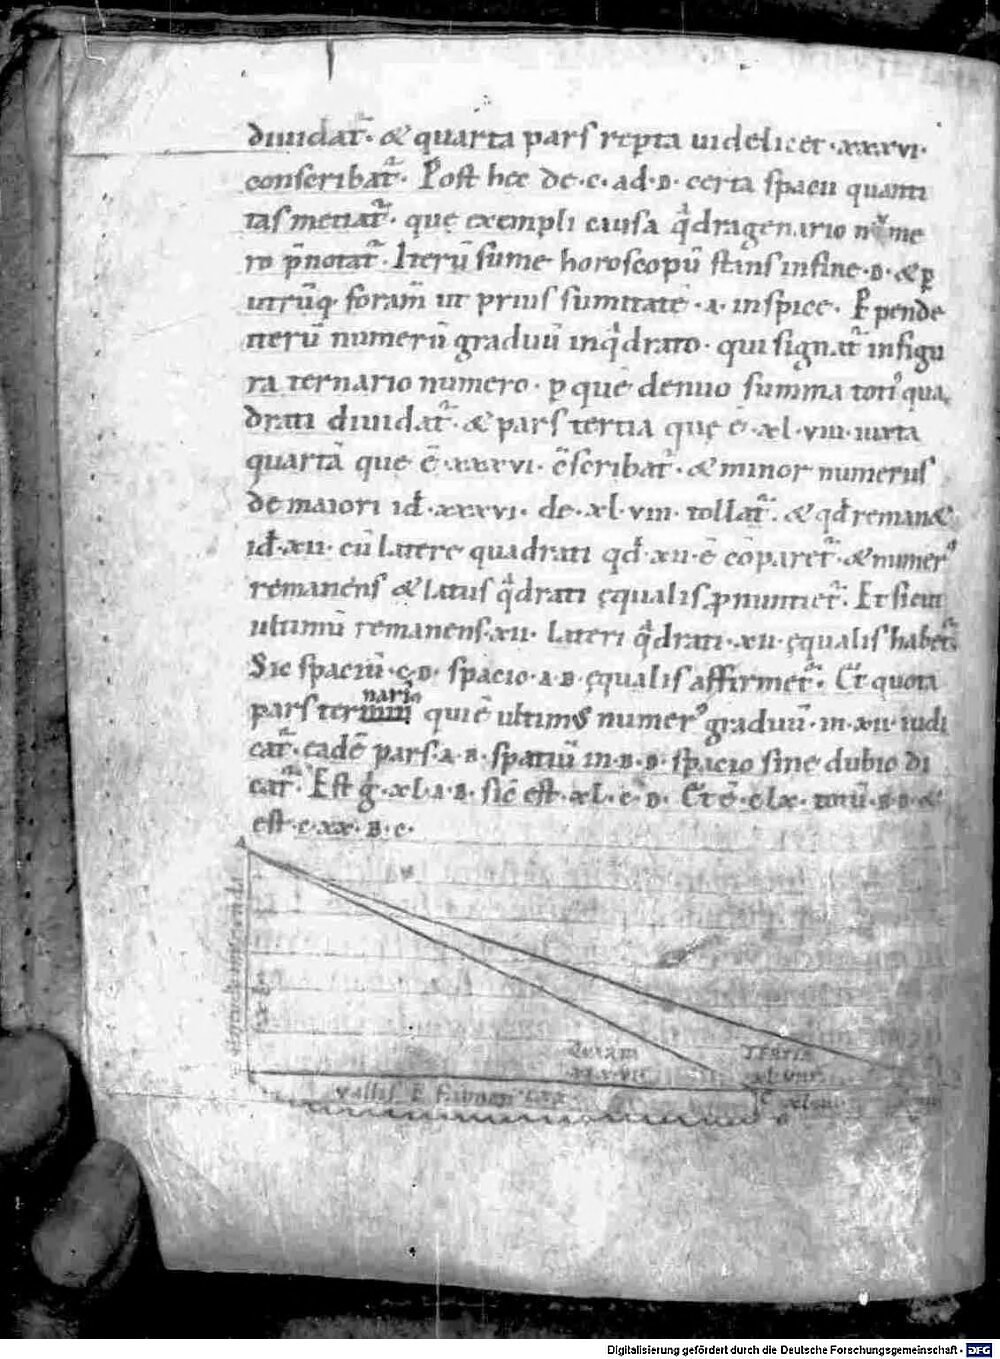 diuidat᷑· & quarta pars rep̱ta uidelicet ·xxxvi·
conscribat᷑· Post hec de ·c· ad ·D· certa spacii quanti
tas metiat᷑· que exempli causa q̍dragenario nume
ro p̄notat᷑· Iterū sume horoscopū stans in fine ·D· & ꝑ
utrūq; foram̄ ut prius sumitatē ·A· inspice· Ꝑpende
iterū numerū graduū in q̍drato· qui signat᷑ in figu
ra ternario numero· ꝑ quē denuo summa toti᷒ qua
drati diuidat᷑· & pars tertia quę ē ·xl·viii· iuxta
quartā que ē ·xxxvi· c̄scribat᷑· & minor numerus
de maiori id̄ ·xxxvi· de ·xl·viii· tollat᷑· & qd̄ reman&
id̄ ·xii· cū latere quadrati qd̄ ·xii· ē cōparet᷑· & numer᷒
remanens & latus q̍drati ęqualis ꝓnuntiet᷑· Et sicut
ultimū remanens ·xii· lateri q̍drati ·xii· ęqualis habet᷑
Sic spaciū ·C·D· spacio ·A·B· ęqualis affirmet᷑· Et quota
nario
pars ter qui ē ultimus numer᷒ graduū· in ·xii· iudi
cat᷑· eadē pars ·A·B· spatiū in ·B·D· spacio sine dubio di
cat᷑· Est g̍ ·xl·A·B· sic est ·xl·C·D· Et ē ·clx· totū ·B·D· &
est ·c·xx· B·C·
A
Quarta
xxxvii
Tertia
xlviii
Vallis
C
D
Digitalisierung gefördert durch die Deutsche Forschungsgemeinschaft - DFG